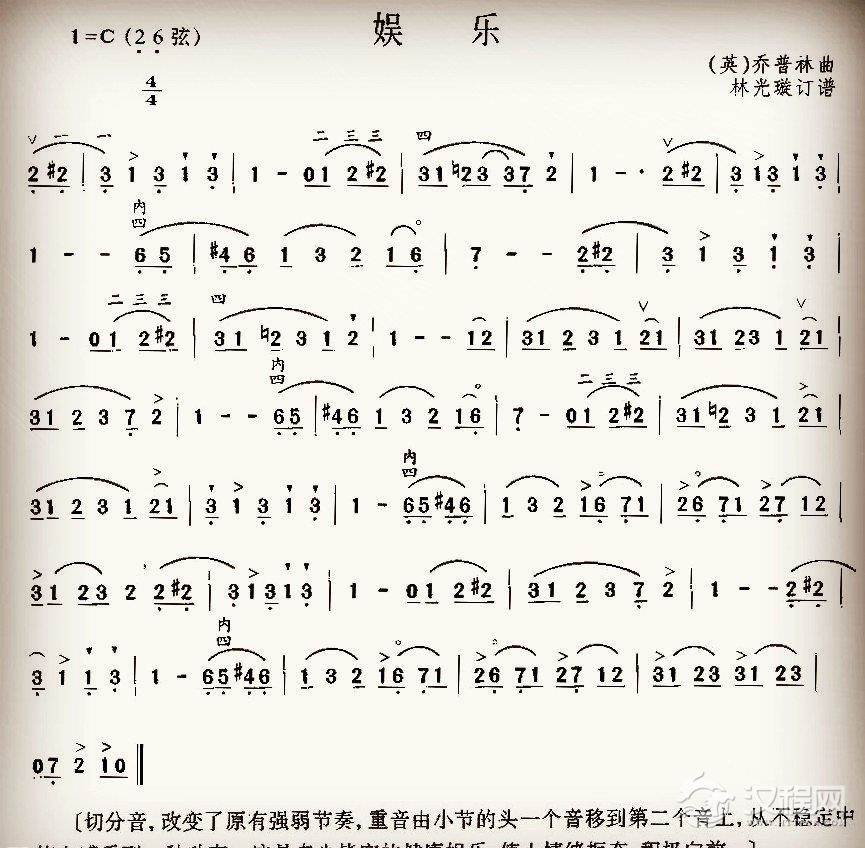 1=C (2 6 弦)
娱 乐
4/4
(英)乔普林曲
林光璇订谱
二 三 三 四
2 #2 | 3 1 3 1 3 | 1 - 01 2#2 | 31♮23 37 2 | 1 - · 2 #2 | 3 13 1 3 |
内
四
1 - - 65 | #46 1 3 2 16 | 7 - - 2#2 | 3 1 3 1 3 |
二 三 三 四
1 - 01 2#2 | 31 ♮2 3 1 2 | 1 - - 12 | 31 2 3 1 21 | 31 23 1 21 |
内
四
二 三 三
31 2 3 7 2 | 1 - - 65 | #46 1 3 2 16 | 7 - 01 2#2 | 31♮2 3 1 21 |
内
四
31 2 3 1 21 | 3 1 3 1 3 | 1 - 65#46 | 1 3 2 16 71 | 26 71 27 12 |
31 23 2 2#2 | 3131 3 | 1 - 01 2#2 | 31 2 3 7 2 | 1 - - 2#2 |
内
四
3 1 1 3 | 1 - 65#46 | 1 3 2 16 71 | 26 71 27 12 | 31 23 31 23 |
07 2 10 ‖
〔切分音,改变了原有强弱节奏,重音由小节的头一个音移到第二个音上,从不稳定中
汉程网